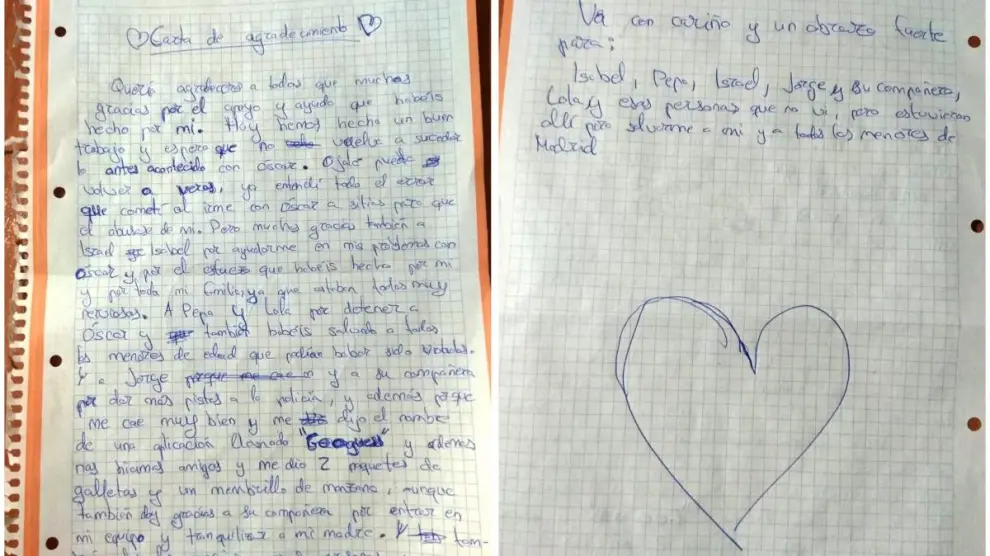 Carta de agradecimiento
Quería agradecer a todos que muchas
gracias por el apoyo y ayuda que habéis
hecho por mi. Hoy hemos hecho un buen
trabajo y espero que no vuelva a suceder
lo antes acontecido con oscar. Ojalá pueda
volver a veros, ya entendí todo el error
que cometí al irme con Óscar a sitios para que
el abusase de mi. Pero muchas gracias también a
Israel Isabel por ayudarme en mis problemas con
oscar y por el esfuezo que habéis hecho por mi
y por toda mi familia, ya que estaban todos muy
nerviosos. A Pepa y Lola por detener a
Óscar y también habéis salvado a todos
los menores de edad que podrían haber sido
Y a Jorge y a su compañera
por dar más pistas a la policía, y además porque
me cae muy bien y me dijo el nombre
de una aplicación llamado "Geoguess" y además
nos hicimos amigos y me dio 2 paquetes de
galletas y un membrillo de manzana, aunque
también doy gracias a su compañera por entrar en
mi equipo y tranquilizar a mi madre. Y tam-
Va con cariño y un abrazo fuerte
para:
Isabel, Pepa, Israel, Jorge y su compañera,
Lola, y esas personas que no vi, pero estuvieron
allí para salvarme a mi y a todos los menores de
Madrid